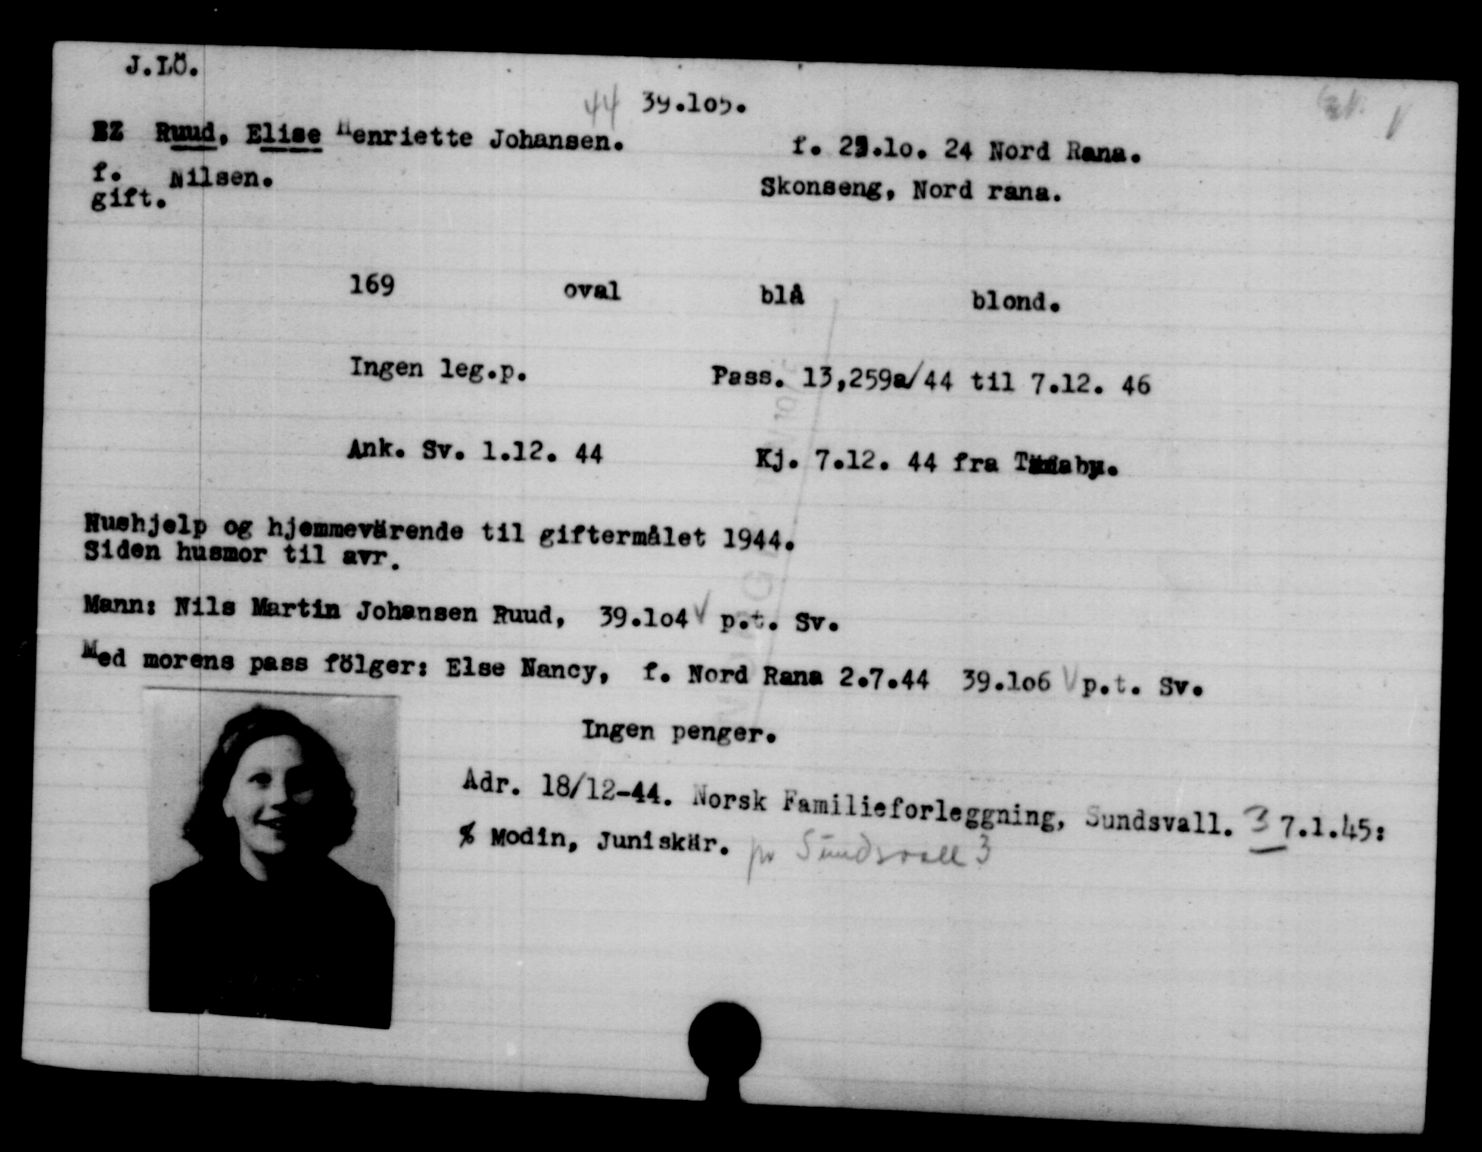 J.LÖ.
44 39.lo5.
Ruud, Elise Henriette Johansen. f. 29.lo. 24 Nord Rana.
f. Nilsen. Skonseng, Nord rana.
gift.
169 oval blå blond.
Ingen leg.p. Pass. 13,259a/44 til 7.12. 46
Ank. Sv. 1.12. 44 Kj. 7.12. 44 fra
Hushjelp og hjemmevärende til giftermålet 1944.
Siden husmor til avr.
Mann: Nils Martin Johansen Ruud, 39.lo4 V p.t. Sv.
Med morens pass fölger: Else Nancy, f. Nord Rana 2.7.44 39.lo6 V p.t. Sv.
Ingen penger.
Adr. 18/12-44. Norsk Familieforleggning, Sundsvall. 3 7.1.45:
% Modin, Juniskär. pr Sundsvall 3